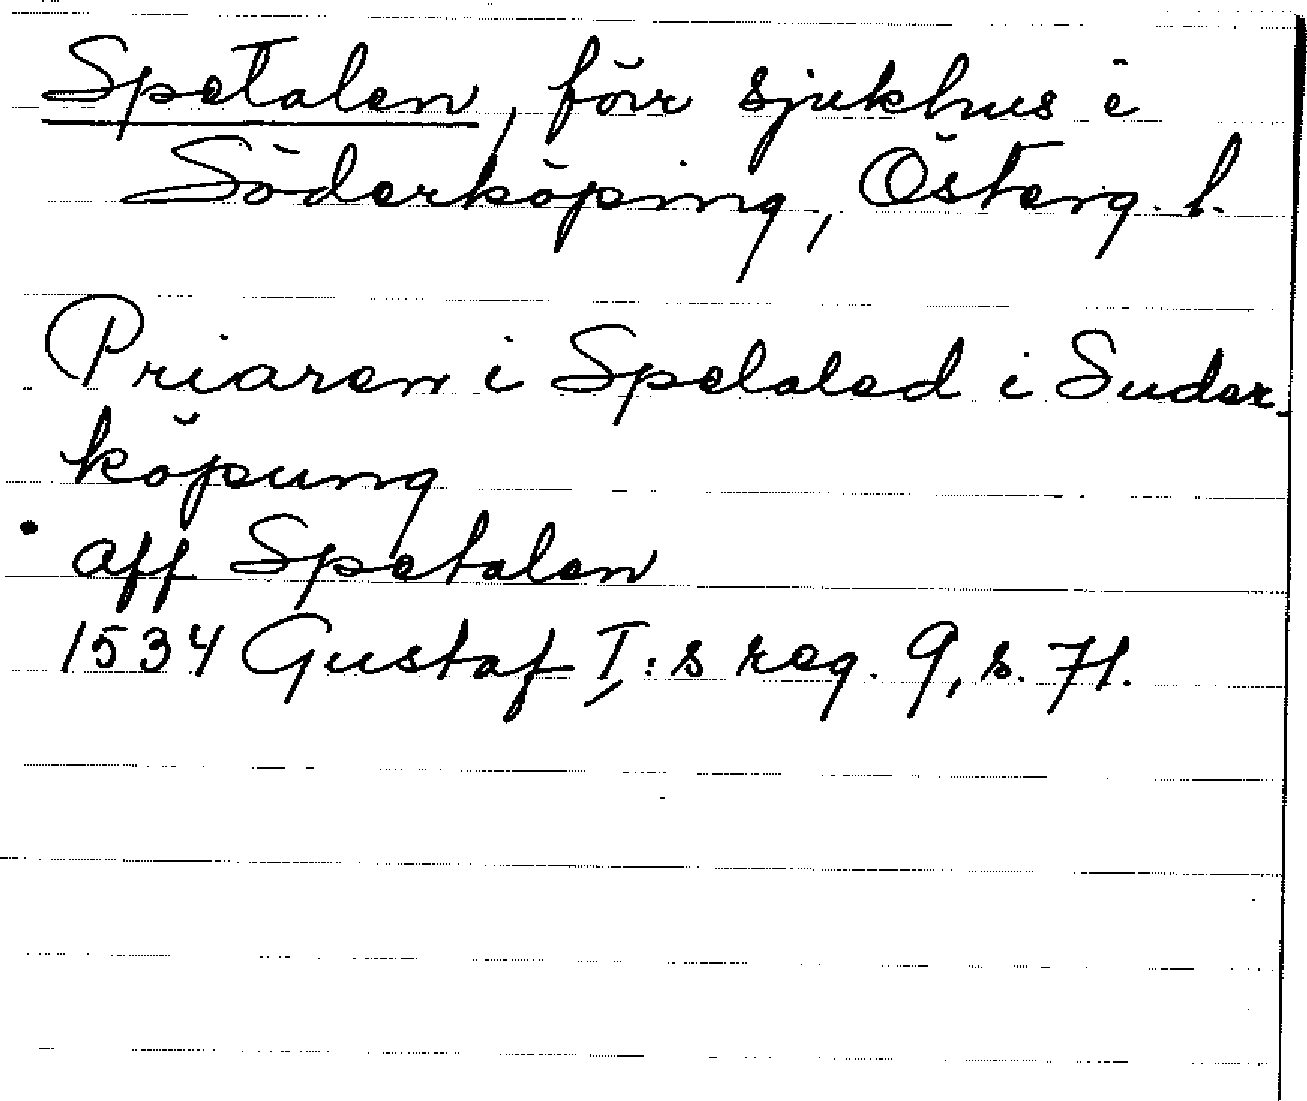 Spetalen, förr sjukhus i
Söderköping, Österg. l.
Priaren i Spelaled i Suder-
köpung
aff Spetalen
1534 Gustaf I:s reg. 9, s. 71.